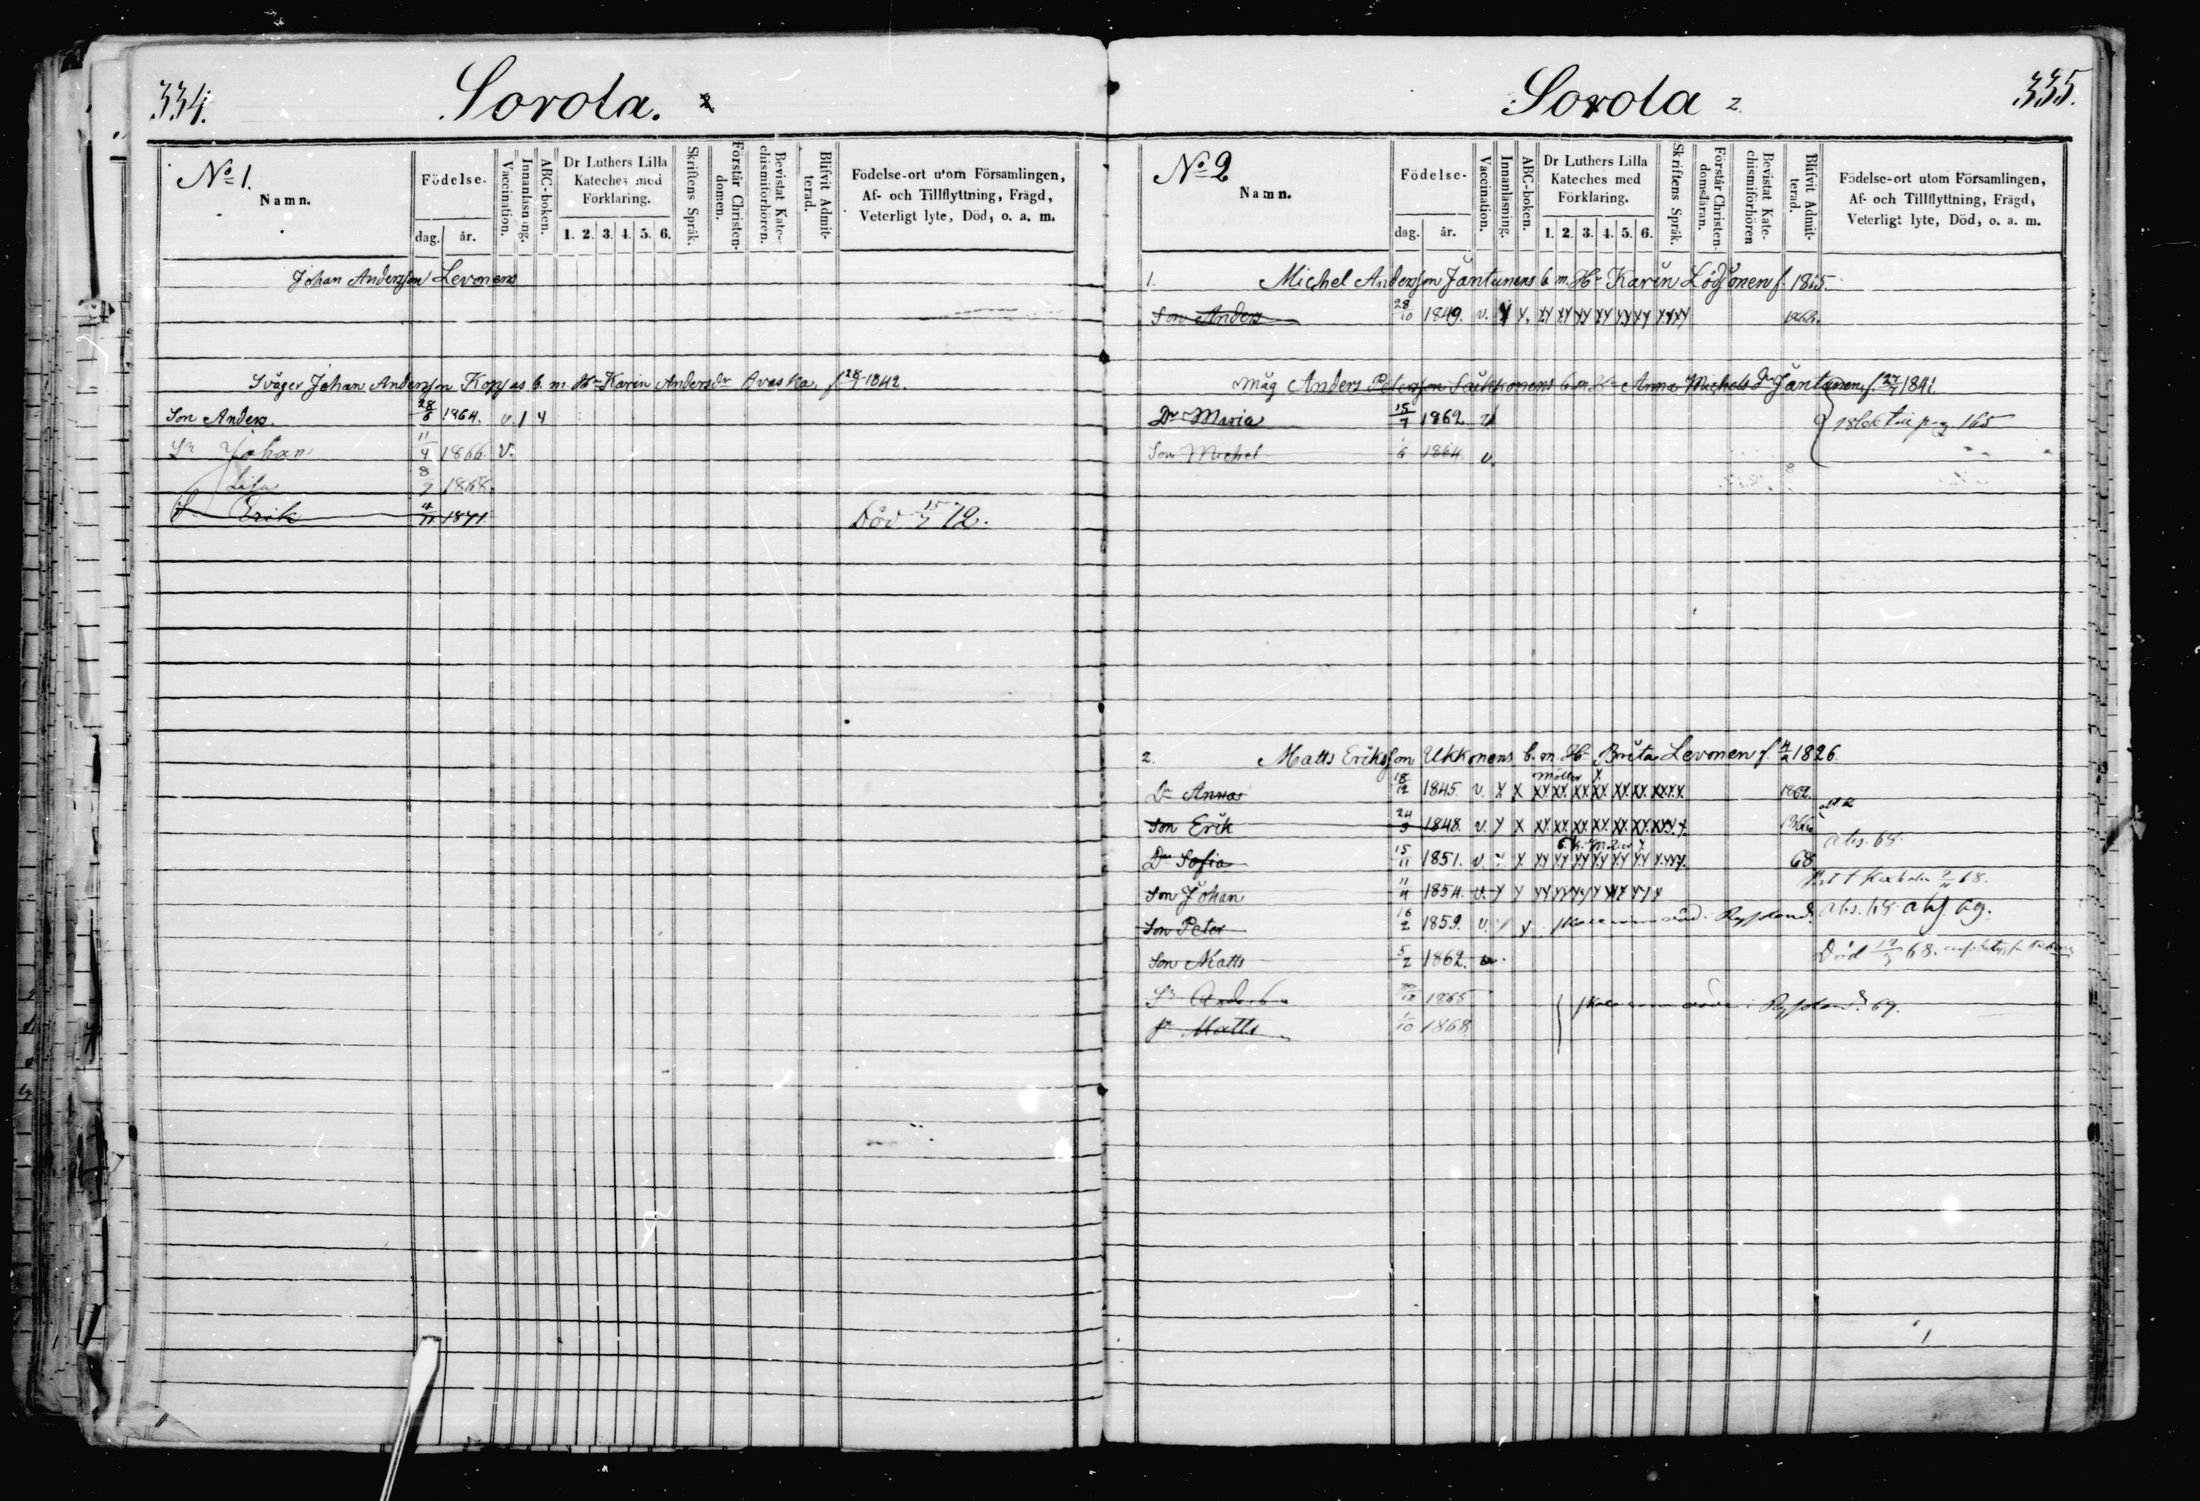 334.
Sorola. 2
No 1.
Namn.
Födelse-
dag.
år.
Vaccination.
Innanläsning.
ABC-boken.
Dr Luthers Lilla
Kateches med
Förklaring.
1. 2. 3. 4. 5. 6.
Skriftens Språk.
Förstår Christen-
domen.
Bevistat Kate-
chismiförhören.
Blifvit Admit-
terad.
Födelse-ort utom Församlingen,
Af- och Tillflyttning, Frägd,
Veterligt lyte, Död, o. a. m.
Johan Andersson Levonens
Svåger Johan Andersson Kopsas b. m. Hu Karin Andersdr Avaska f. 28/7 1842.
Son Anders. 28/6 1864. v. 1 4
Sn Johan 11/4 1866. v.
Lisa 8/7 1868.
Sn Erik 4/11 1871. Död 15/7 72.
335.
Sorola 2.
No 2
Namn.
Födelse-
dag.
år.
Vaccination.
Innanläsning.
ABC-boken.
Dr Luthers Lilla
Kateches med
Förklaring.
1. 2. 3. 4. 5. 6.
Skriftens Språk.
Förstår Christen-
domsläran.
Bevistat Kate-
chismiförhören
Blifvit Admit-
terad.
Födelse-ort utom Församlingen,
Af- och Tillflyttning, Frägd,
Veterligt lyte, Död, o. a. m.
1. Michel Andersson Jantunens b. m. Hu Karin f. 1815.
Son Anders 28/10 1849. v. x x. xx xx xx xx xx xx xxxx
Måg Anders Petersson Sukkonens b. m. Hu Anna Michelsdr Jantunen f. 27/7 1841
Dr Maria 15/7 1862 v till pag. 165
Son Michel 1864. v.
2. Matts Eriksson Ukkonens b. m. Hu Brita Levonen f. 1826.
Dr Anna 18/12 1845. v. x x xx xx xx xx xx xx xxxx 1862.
Son Erik 24/3 1848. v. x x xx xx xx xx xx xx xxxx 1866
abs. 68.
Dr Sofia 15/11 1851. v. x x xx xx xx xx xx xx xxxx. 68
Son Johan 11/4 1854. v. x x xx xx xx xx xx
Son Peter 16/2 1859. v. Ryssland. abs. 68 abs 69.
Son Matts 5/2 1862. v. Död 19/3 68.
Sn Anders 1865 Ryssland 69.
Sn Matts 1/10 1868